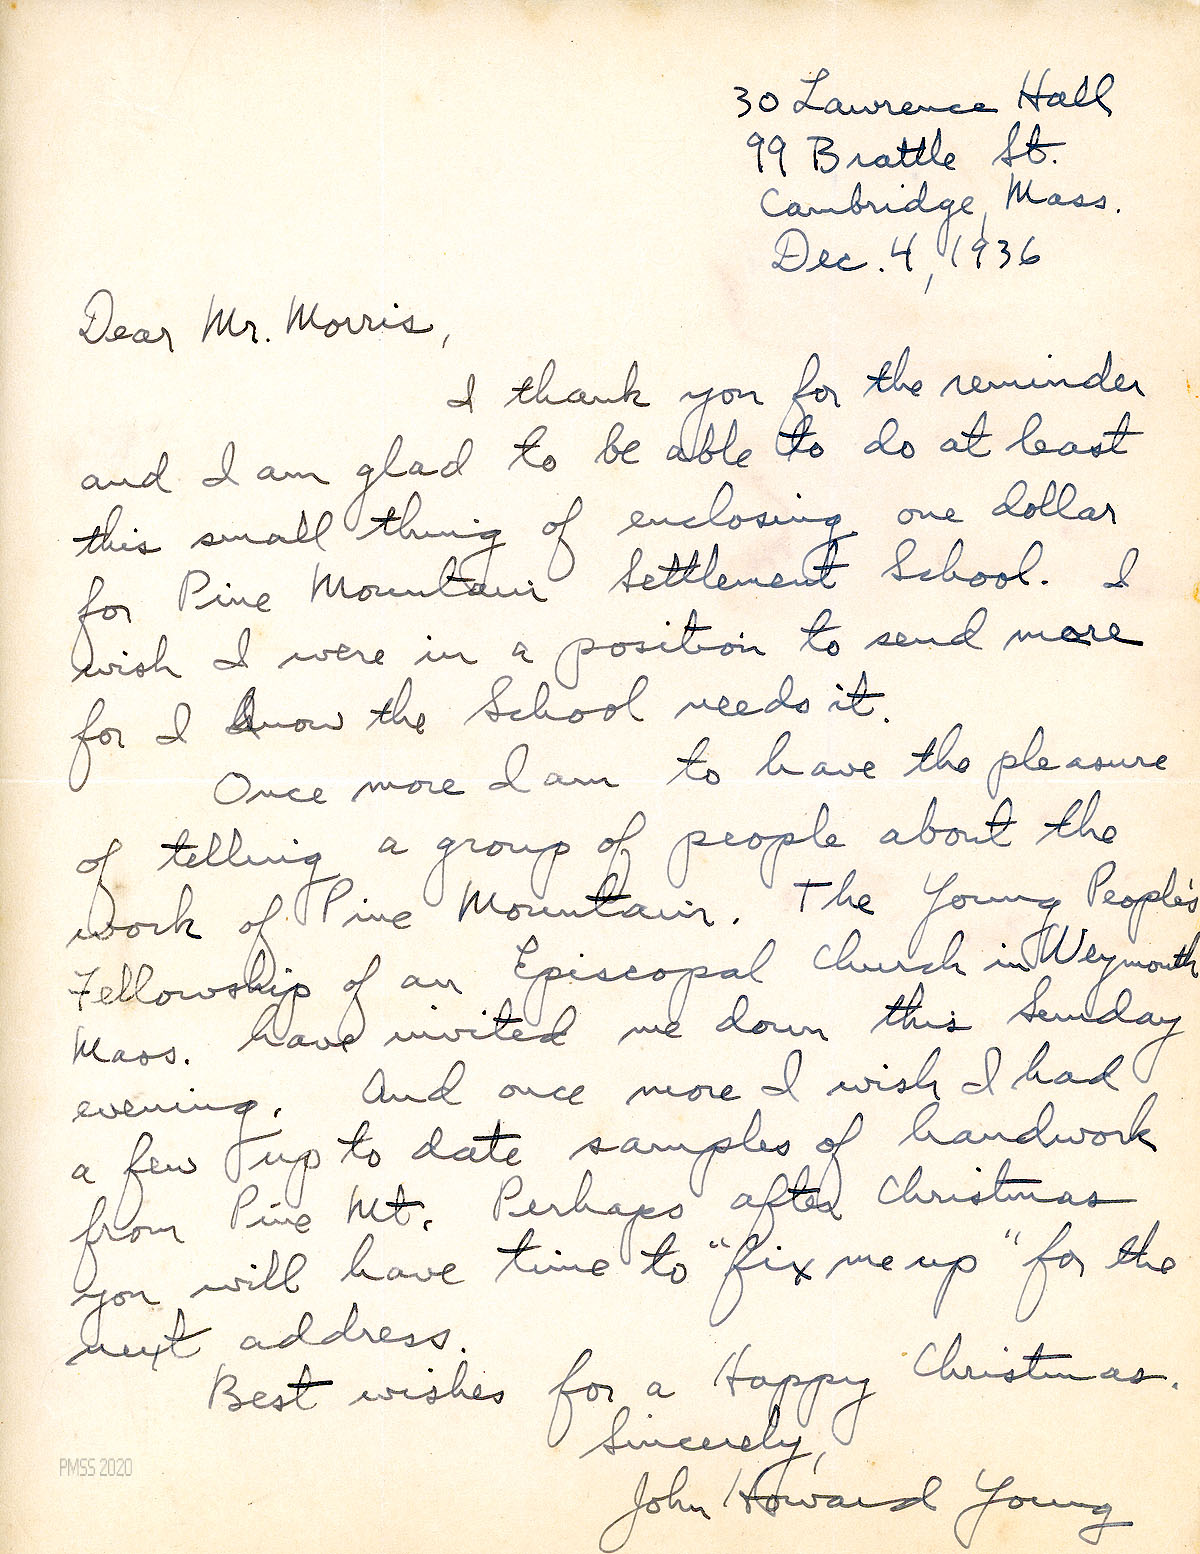 30 Lawrence Hall
99 Brattle St.
Cambridge, Mass.
Dec. 4, 1936
Dear Mr. Morris,
I thank you for the reminder
and I am glad to be able to do at least
this small thing of enclosing one dollar
for Pine Mountain Settlement School. I
wish I were in a position to send more
for I know the School needs it.
Once more I am to have the pleasure
of telling a group of people about the
work of Pine Mountain. The Young People's
Fellowship of an Episcopal Church in Weymouth
Mass. have invited me down this Sunday
evening. And once more I wish I had
a few up to date samples of handwork
from Pine Mt. Perhaps after Christmas
you will have time to "fix me up" for the
next address.
Best wishes for a Happy Christmas.
Sincerely,
John Howard Young
PMSS 2020